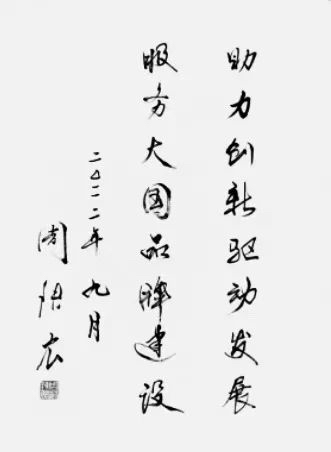 助力创新驱动发展
服务大国品牌建设
二〇二二年九月
周